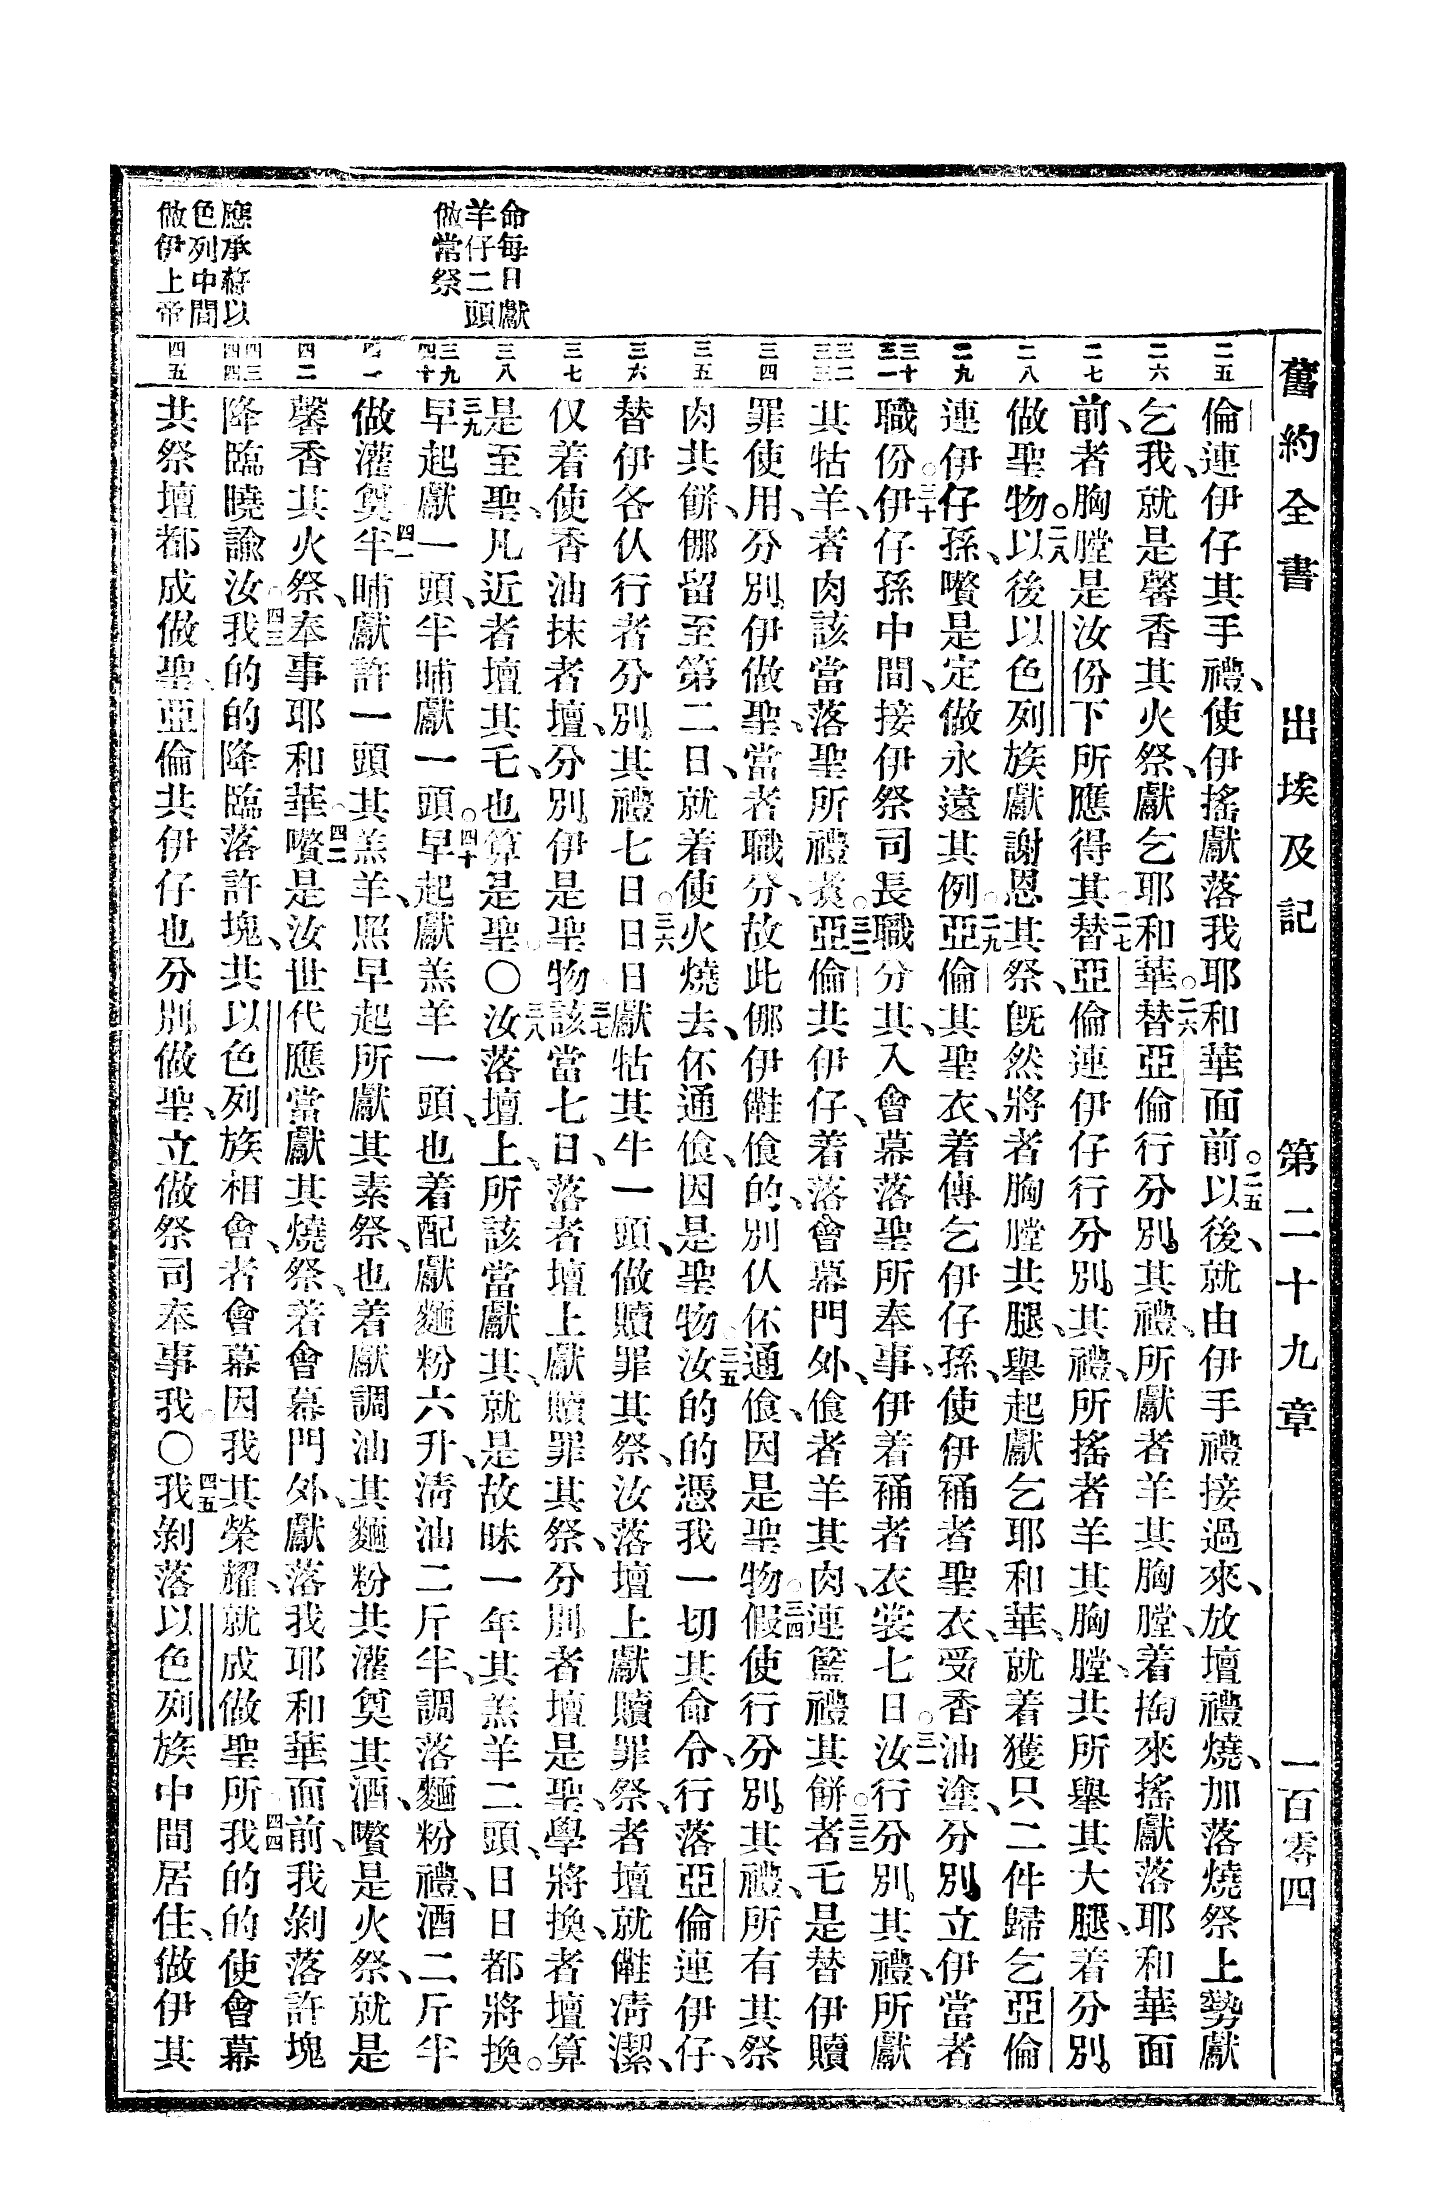 舊約全書　出埃及記　第二十九章　一百零四
命每日獻
羊仔二頭
做常祭
應承蒞以
色列中間
做伊上帝
二五
二六
二七
二八
二九
三十
三一
三二
三三
三四
三五
三六
三七
三八
三九
四十
四一
四二
四三
四四
四五
倫連伊仔其手禮、使伊搖獻落我耶和華面前。二五以後、就由伊手禮接過來、放壇禮燒、加落燒祭上勢獻
乞我、就是馨香其火祭、獻乞耶和華。二六替亞倫行分別其禮、所獻者羊其胸膛、着掏來搖獻落耶和華面
前、者胸膛是汝份下所應得其。二七替亞倫連伊仔行分別其禮、所搖者羊其胸膛、共所舉其大腿、着分別
做聖物。二八以後以色列族獻謝恩其祭、旣然將者胸膛共腿、舉起獻乞耶和華、就着獲只二件歸乞亞倫
連伊仔孫、嚽是定做永遠其例。二九亞倫其聖衣、着傳乞伊仔孫、使伊䘄者聖衣、受香油塗、分別立伊當者
職份。三十伊仔孫中間、接伊祭司長職分其、入會幕落聖所奉事、伊着䘄者衣裳七日。三一汝行分別其禮、所獻
其牯羊、者肉該當落聖所禮煑。三二亞倫共伊仔、着落會幕門外、食者羊其肉、連籃禮其餅。三三者乇是替伊贖
罪使用、分別伊做聖、當者職分、故此㑚伊儺食的、別仈伓通食、因是聖物。三四假使行分別其禮、所有其祭
肉共餅、㑚留至第二日、就着使火燒去、伓通食、因是聖物。三五汝的的憑我一切其命令、行落亞倫連伊仔、
替伊各仈行者分別其禮七日。三六日日獻牯其牛一頭、做贖罪其祭、汝落壇上獻贖罪祭、者壇就儺凊潔、
仅着使香油抹者壇、分別伊是聖物。三七該當七日、落者壇上獻贖罪其祭、分別者壇是聖、學將換、者壇算
是至聖、凡近者壇其乇、也算是聖。〇三八汝落壇上、所該當獻其、就是故昧一年其羔羊二頭、日日都將換。
三九早起獻一頭、半晡獻一頭。四十早起獻羔羊一頭、也着配獻麵粉六升、淸油二斤半、調落麵粉禮、酒二斤半
做灌奠。四一半晡獻許一頭其羔羊、照早起所獻其素祭、也着獻調油其麵粉、共灌奠其酒、嚽是火祭、就是
馨香其火祭、奉事耶和華。四二嚽是汝世代應當獻其燒祭、着會幕門外、獻落我耶和華面前、我剝落許塊
降臨曉諭汝。四三我的的降臨落許塊、共以色列族相會、者會幕因我其榮耀、就成做聖所。四四我的的使會幕
共祭壇都成做聖、亞倫共伊仔、也分別做聖、立做祭司奉事我。〇四五我剝落以色列族中間居住、做伊其